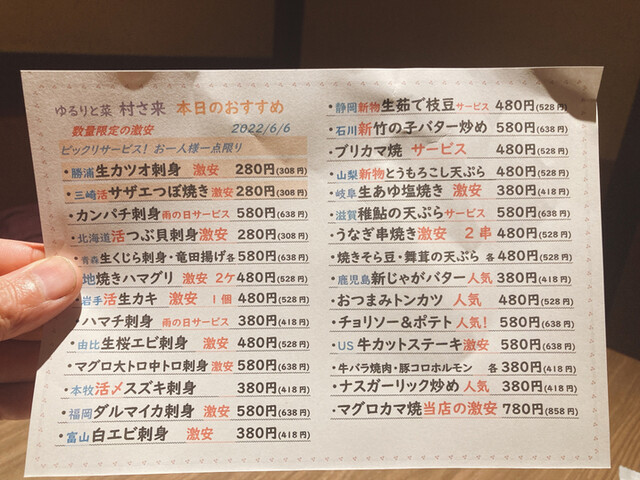 ゆるりと菜 村さ来 本日のおすすめ
数量限定の激安 2022/6/6
ビックリサービス! お一人様一点限り
・勝浦生カツオ刺身 激安 280円(308円)
・三崎活サザエつぼ焼き激安 280円(308円)
・カンパチ刺身雨の日サービス 580円(638円)
・北海道活つぶ貝刺身激安 280円(308円)
・青森生くじら刺身・竜田揚げ各580円(638円)
地焼きハマグリ 激安 2ケ480円(528円)
・岩手活生カキ 激安 1個 480円(528円)
・ハマチ刺身 雨の日サービス 380円(418円)
・由比生桜エビ刺身 激安 480円(528円)
・マグロ大トロ中トロ刺身激安 580円(638円)
・本牧活〆スズキ刺身 380円(418円)
・福岡ダルマイカ刺身 激安 580円(638円)
・富山白エビ刺身 激安 380円(418円)
・静岡新物生茹で枝豆サービス 480円(528円)
・石川新竹の子バター炒め 580円(638円)
・ブリカマ焼 サービス 480円(528円)
・山梨新物とうもろこし天ぷら 480円(528円)
・岐阜生あゆ塩焼き 激安 380円(418円)
・滋賀稚鮎の天ぷらサービス 580円(638円)
・うなぎ串焼き激安 2串 480円(528円)
・焼きそら豆・舞茸の天ぷら 各480円(528円)
・鹿児島新じゃがバター人気 380円(418円)
・おつまみトンカツ 人気 480円(528円)
・チョリソー&ポテト 人気! 580円(638円)
・US牛カットステーキ激安 580円(638円)
・牛バラ焼肉・豚コロホルモン 各380円(418円)
・ナスガーリック炒め 人気 380円(418円)
・マグロカマ焼当店の激安 780円(858円)